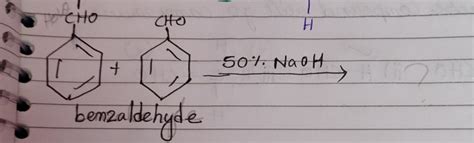 CHO CHO H
+ 50% NaOH
benzaldehyde